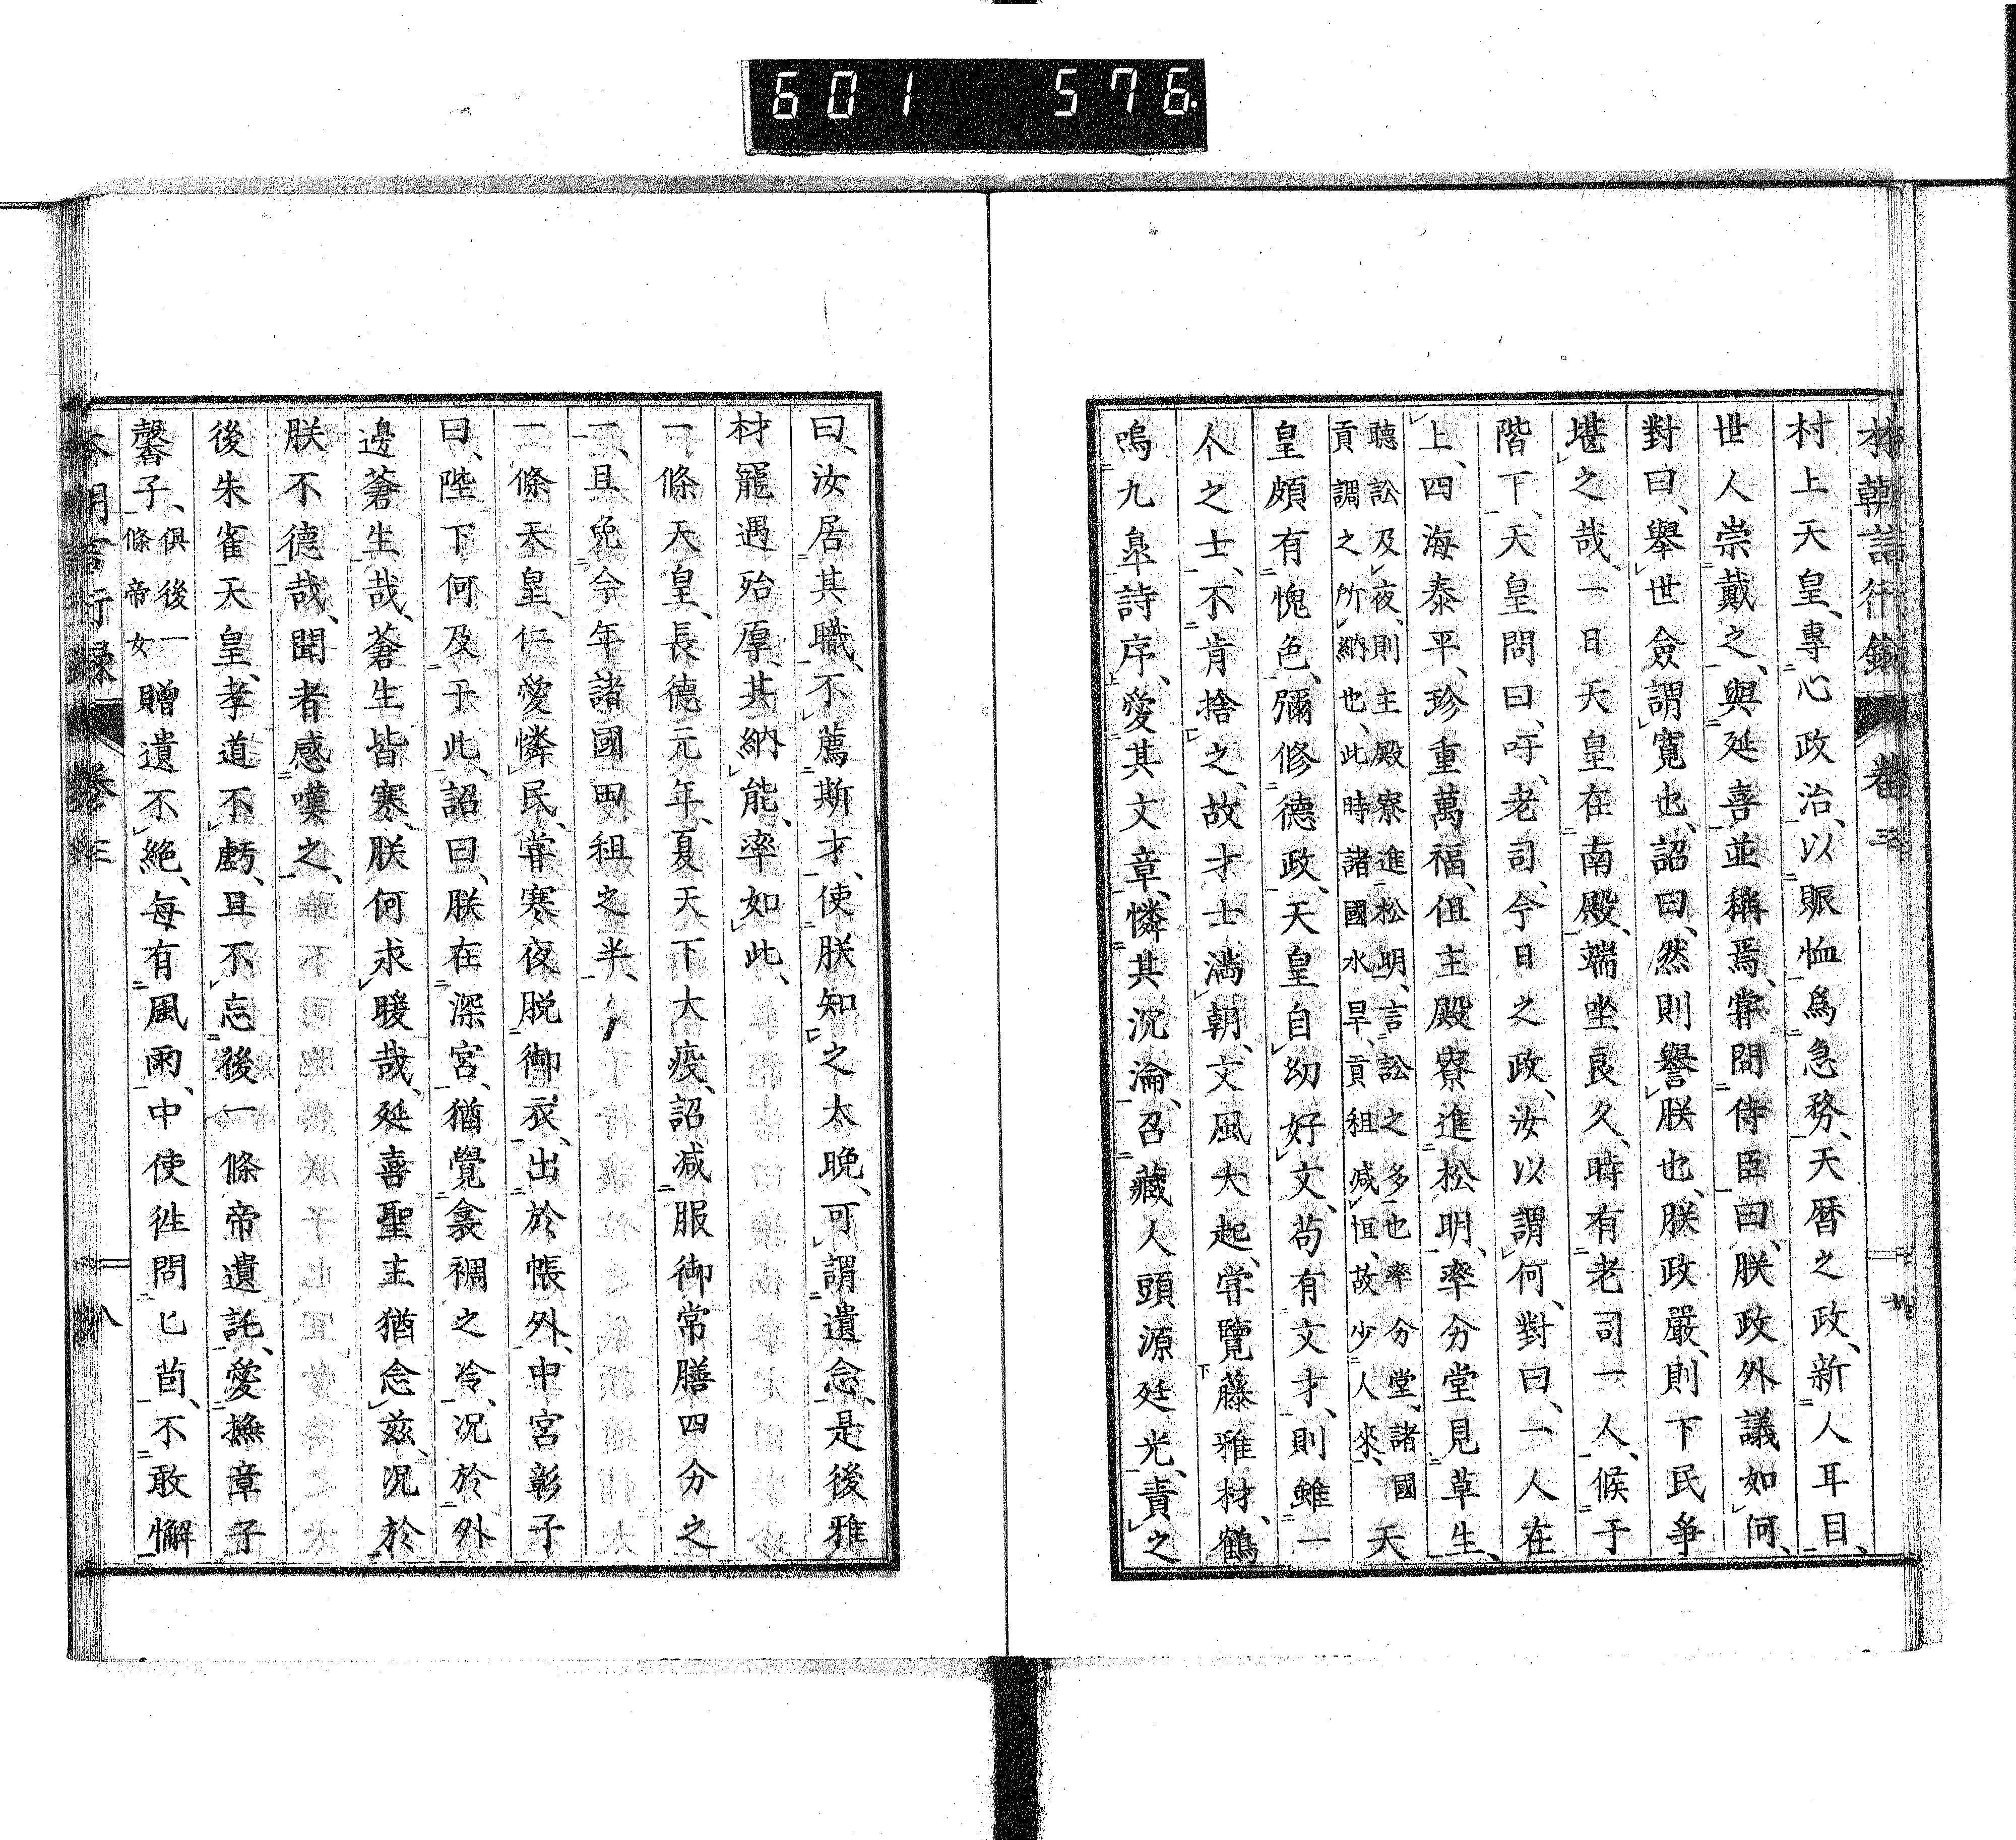 601 576.
村上天皇、專心政治、以賑恤爲急務、天曆之政、新人耳目、
世人崇戴之、與延喜並稱焉、嘗問侍臣曰、朕政外議如何、
對曰、舉世僉謂寬也、詔曰、然則譽朕也、朕政嚴、則下民爭
堪之哉、一日天皇在南殿、端坐良久、時有老司一人、候于
階下、天皇問曰、吁、老司、今日之政、汝以謂何、對曰、一人在
上、四海泰平、珍重萬福、但主殿寮進松明、率分堂見草生、
聽訟及夜、則主殿寮進松明、言訟之多也率分堂、諸國
貢調之所納也、此時諸國水旱、貢租减恒、故少人來、天
皇頗有愧色、彌修德政、天皇自幼好文、苟有文才、則雖一
介之士、不肯捨之、故才士滿朝、文風大起、嘗覽藤雅材、鶴
鳴九臯詩序、愛其文章、憐其沉淪、召藏人頭源延光、責之
曰、汝居其職、不薦斯才、使朕知之太晚、可謂遺念、是後雅
材寵遇殆厚、其納能、率如此、
一條天皇、長德元年、夏天下大疫、詔减服御常膳四分之
一、且免今年諸國田租之半、
一條天皇、仁愛憐民、嘗寒夜脫御衣、出於帳外、中宮彰子
曰、陛下何及于此、詔曰、朕在深宮、猶覺衾裯之冷、况於外
邊蒼生哉、蒼生皆寒、朕何求暖哉、延喜聖主猶念茲、况於
朕不德哉、聞者感嘆之、
後朱雀天皇、孝道不虧、且不忘後一條帝遺託、愛撫章子
馨子、俱後一條帝女贈遺不絕、每有風雨、中使往問匕茵、不敢懈
本朝言行錄 卷三 八